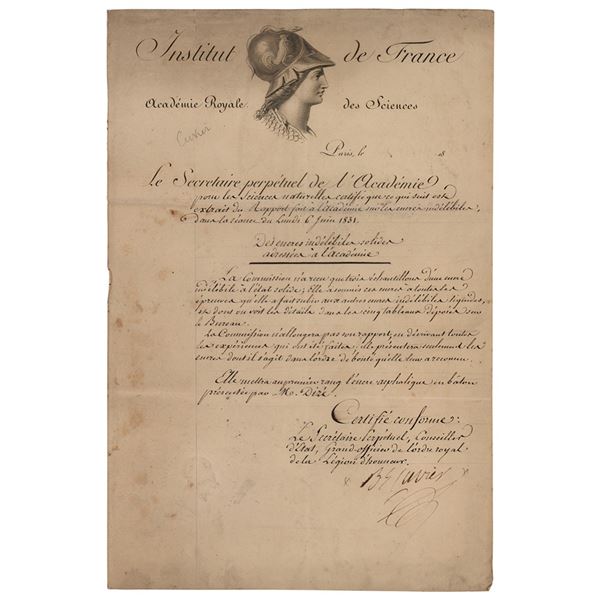 Institut de France
Académie Royale des Sciences
Cuvier
Paris, le 18
Le Secretaire perpétuel de l'Académie
pour les sciences naturelles certifie que ce qui suit est
extrait du Rapport fait à l'académie sur les encres indélébiles,
dans la séance du Lundi 6 Juin 1831.
Des encres indélébiles solides
adressées à l'académie
La Commission n'a reçu que trois échantillons d'une encre
indélébile à l'état solide; Elle a soumis ces encres à toutes les
épreuves qu'elle a fait subir aux autres encres indélébiles liquides,
et dont on voit les détails dans les cinq tableaux déposés sur
le Bureau.
La Commission n'allongera pas son rapport, en décrivant toutes
les expériences qui ont été faites; elle présentera seulement les
encres dont il s'agit dans l'ordre de bonté qu'elle leur a reconnu.
Elle mettra au premier rang l'encre asphaltique en bâton
présentée par M. Dizé.
Certifié conforme:
Le Secrétaire Perpétuel, Conseiller
d'état, grand officier de l'ordre royal
de la Légion d'honneur.
Bn Cuvier